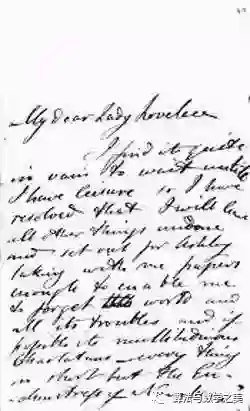 My dear Lady Lovelace
I find it quite
in vain to wait until
I have leisure so I have
resolved that I will leave
all other things undone
and set out for Ashley
taking with me papers
enough to enable me
to forget this world and
all its troubles and if
possible its multitudinous
Charlatans – every thing
in short but the En-
chantress of N
算法与数学之美